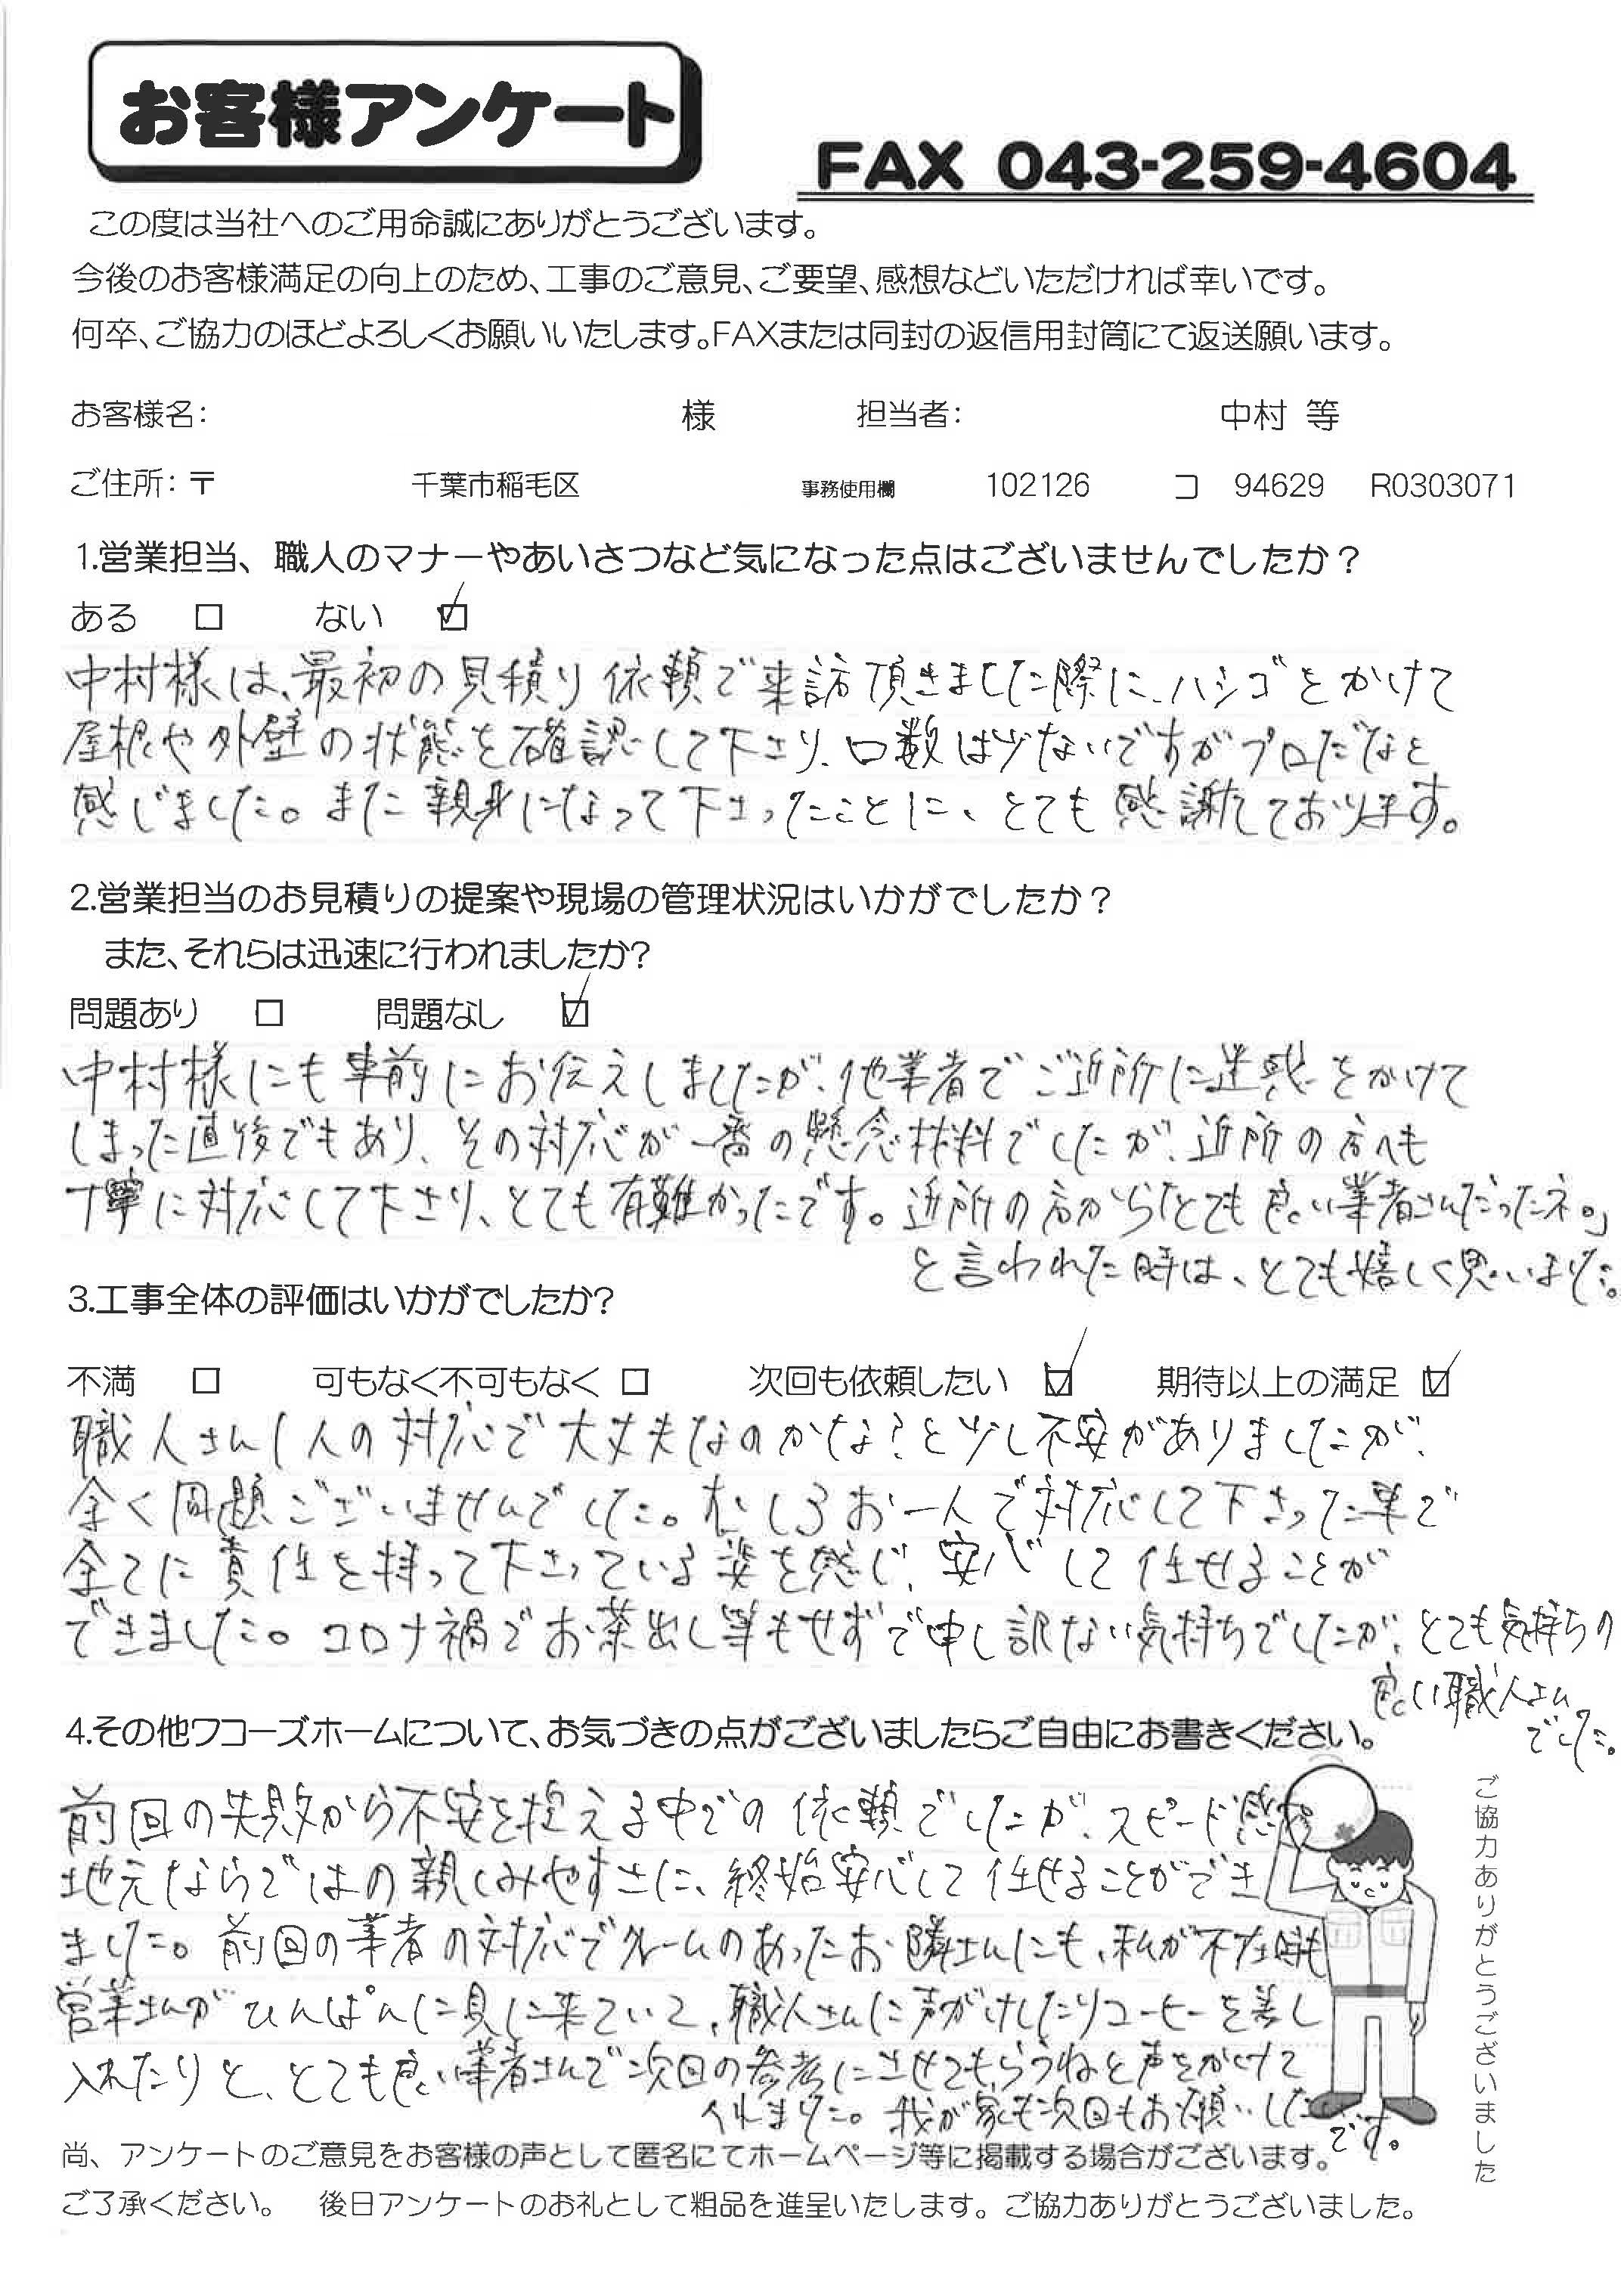 お客様アンケート
FAX 043-259-4604
この度は当社へのご用命誠にありがとうございます。
今後のお客様満足の向上のため、工事のご意見、ご要望、感想などいただければ幸いです。
何卒、ご協力のほどよろしくお願いいたします。FAXまたは同封の返信用封筒にて返送願います。
お客様名: 様 担当者: 中村 等
ご住所:〒 千葉市稲毛区 事務使用欄 102126 コ 94629 R0303071
1.営業担当、職人のマナーやあいさつなど気になった点はございませんでしたか？
ある □ ない ☑
中村様は、最初の見積り依頼で来訪頂きました際に、ハシゴをかけて
屋根や外壁の状態を確認して下さり、口数は少ないですがプロだなと
感じました。また親身になって下さったことに、とても感謝しております。
2.営業担当のお見積りの提案や現場の管理状況はいかがでしたか？
また、それらは迅速に行われましたか?
問題あり □ 問題なし ☑
中村様にも事前にお伝えしましたが、他業者でご近所に迷惑をかけて
しまった直後でもあり、その対応が一番の懸念材料でしたが、近所の方へも
丁寧に対応して下さり、とても有難かったです。近所の方から「とても良い業者さんだったネ。」
と言われた時は、とても嬉しく思いました。
3.工事全体の評価はいかがでしたか?
不満 □ 可もなく不可もなく □ 次回も依頼したい ☑ 期待以上の満足 ☑
職人さん1人の対応で大丈夫なのかな？と少し不安がありましたが、
全く問題ございませんでした。むしろお一人で対応して下さった事で
全てに責任を持って下さっている姿を感じ、安心して任せることが
できました。コロナ禍でお茶出し等もせずで申し訳ない気持ちでしたが、とても気持ちの
良い職人さん
でした。
4.その他ワコーズホームについて、お気づきの点がございましたらご自由にお書きください。
前回の失敗から不安を抱える中での依頼でしたが、スピード感や
地元ならではの親しみやすさに、終始安心して任せることができ
ました。前回の業者の対応でクレームのあったお隣さんにも、私が不在時も
営業さんがひんぱんに見に来ていて、職人さんに声がけしたりコーヒーを差し
入れたりと、とても良い業者さんで次回の参考にさせてもらうねと声をかけて
くれました。我が家も次回もお願いしたいです。
ご協力ありがとうございました
尚、アンケートのご意見をお客様の声として匿名にてホームページ等に掲載する場合がございます。
ご了承ください。 後日アンケートのお礼として粗品を進呈いたします。ご協力ありがとうございました。